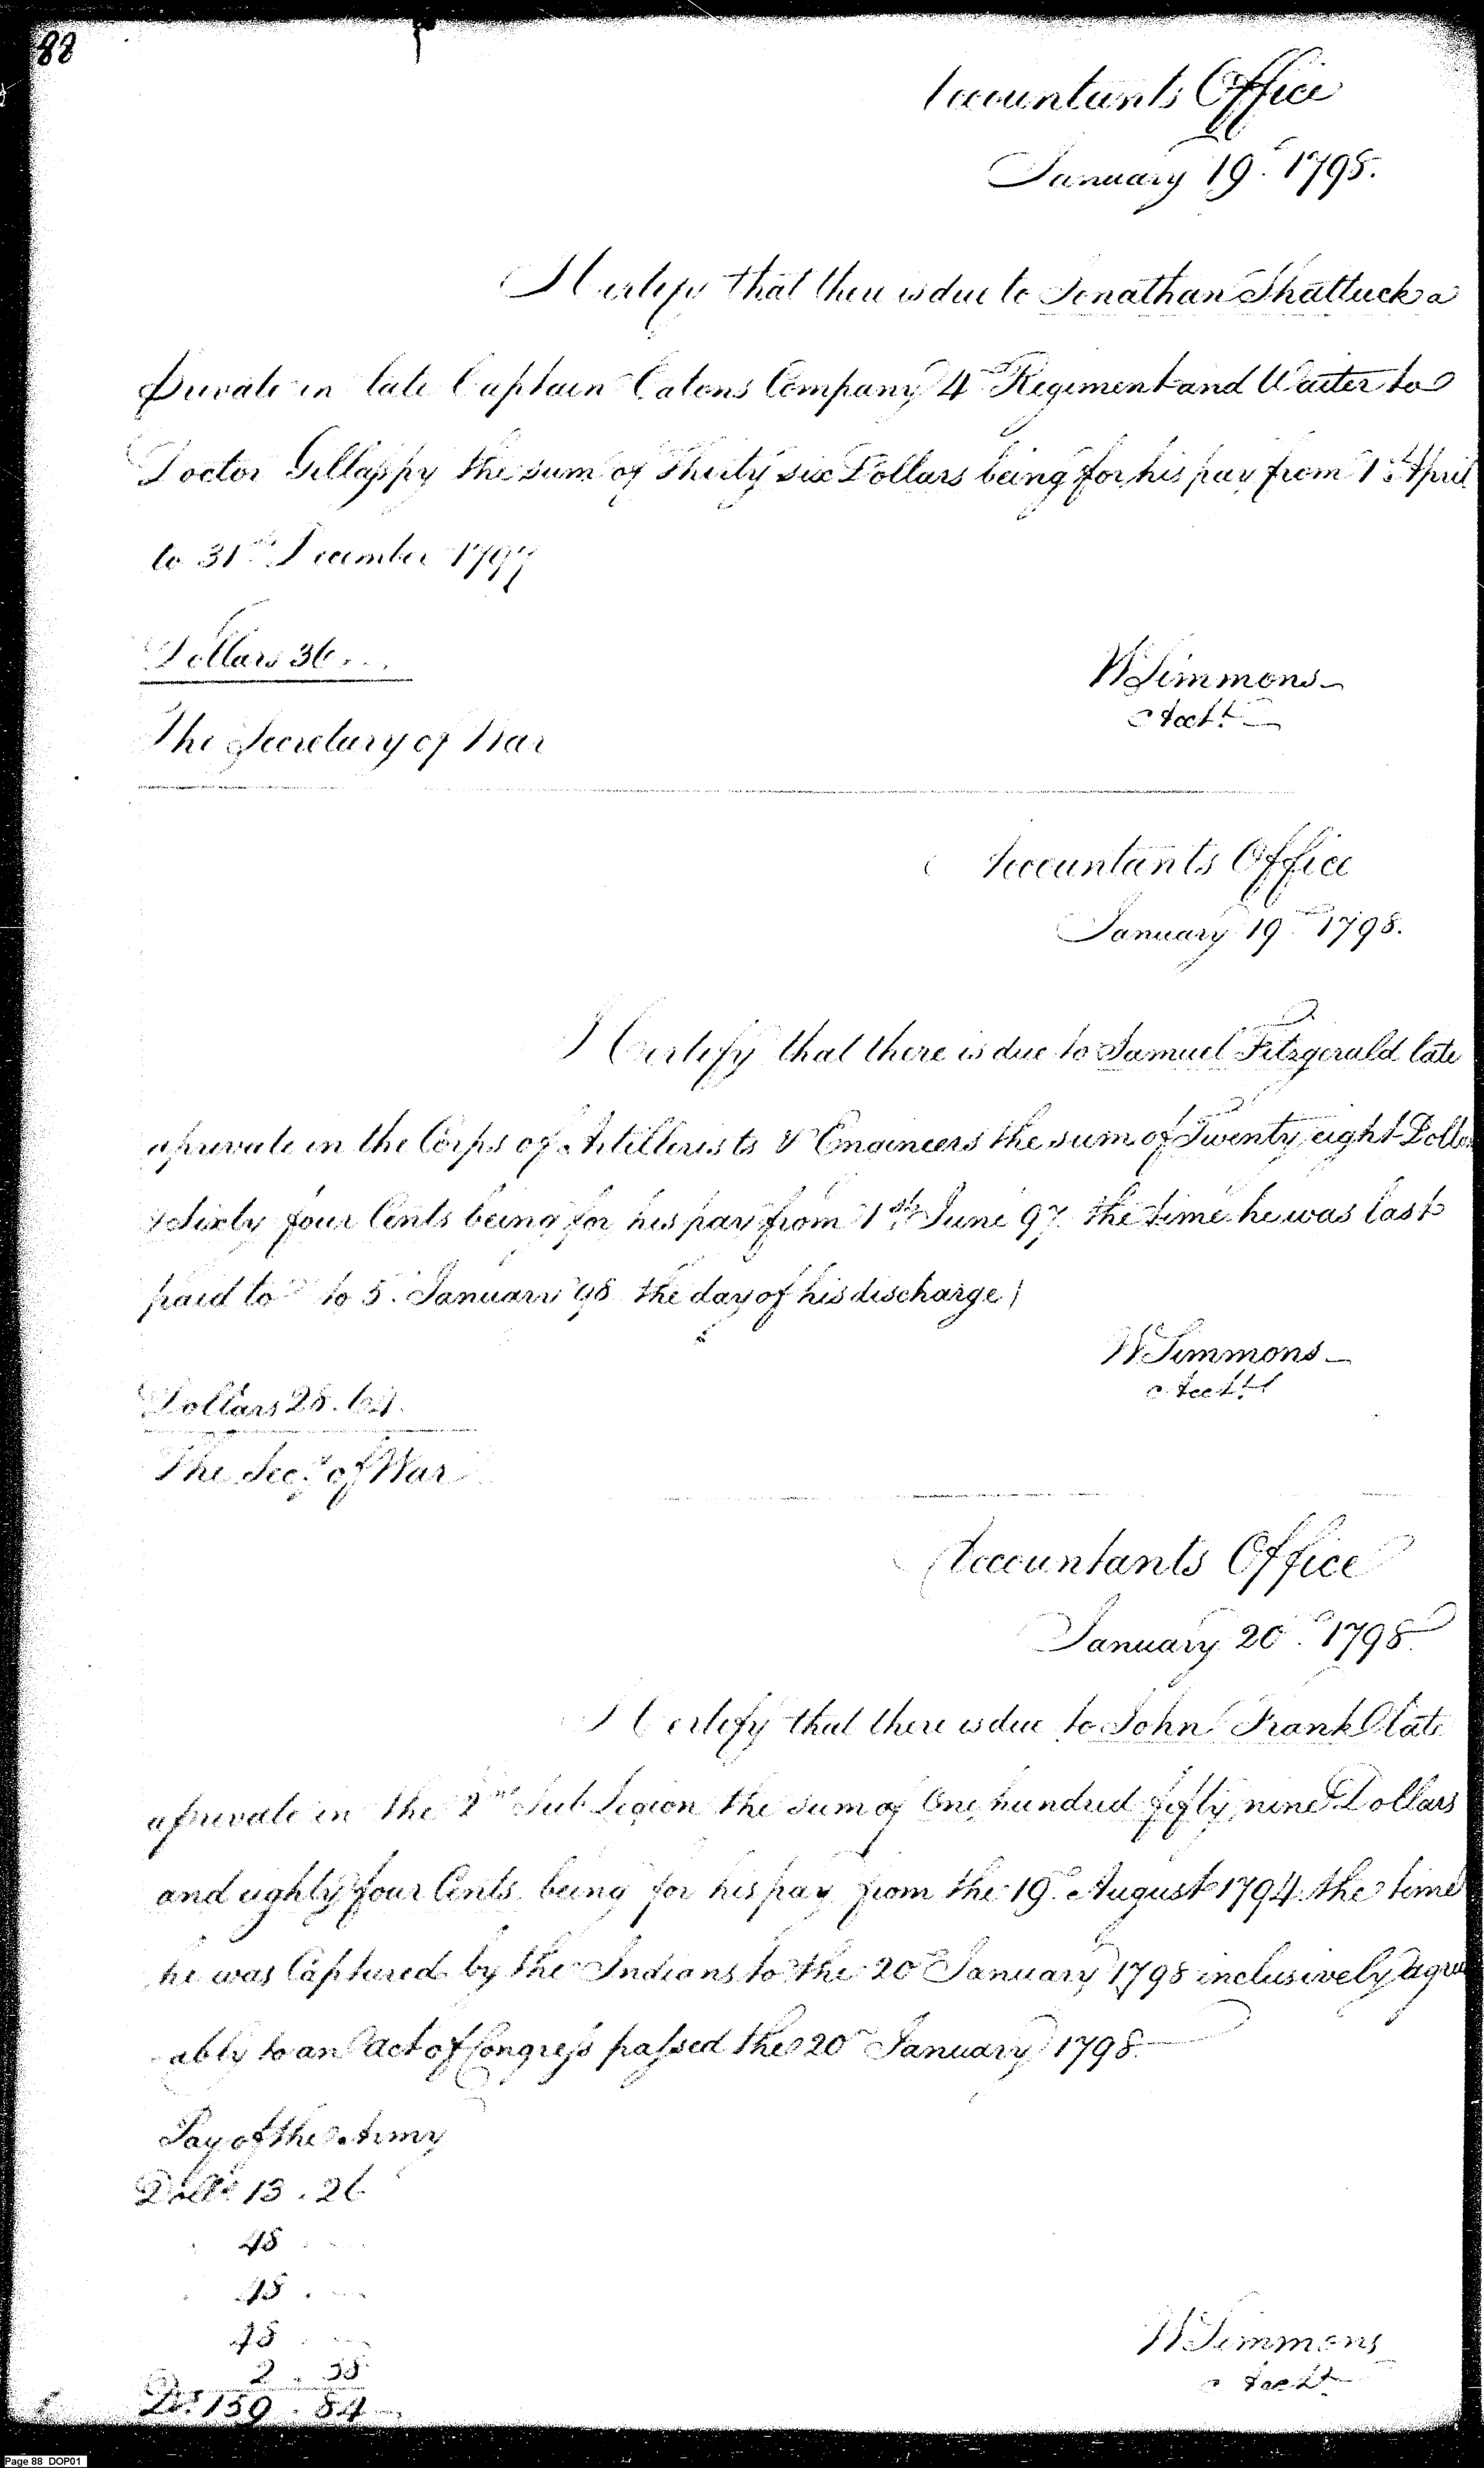 88
Accountants Office
January 19th 1798.
I Certify that there is due to Jonathan Shattuck a
private in late Captain Eatons Company 4th Regiment and Waiter to
Doctor Gillaspy the sum of Thirty six Dollars being for his pay from 1st April
to 31st December 1797
Dollars 36...
WSimmons
Acctt
The Secretary of War
Accountants Office
January 19th 1798.
I Certify that there is due to Samuel Fitzgerald late
a private in the Corps of Artillerists & Engineers the sum of Twenty eight Dollars
& Sixty four Cents being for his pay from 1st June 97 the time he was last
paid to to 5. January 98 the day of his discharge
WSimmons
Acctt
Dollars 28.64.
The Secy of War
Accountants Office
January 20th 1798
I Certify that there is due to John Frank late
a private in the 2nd Sub Legion the sum of One hundred fifty nine Dollars
and eighty four Cents being for his pay from the 19th August 1794 the time
he was Captured by the Indians to the 20th January 1798 inclusively agree
ably to an Act of Congress passed the 20th January 1798
Pay of the Army
Dolls 13.26
48
48
48
2.58
Ds. 159.84
WSimmons
Acctt
Page 88 DOP01